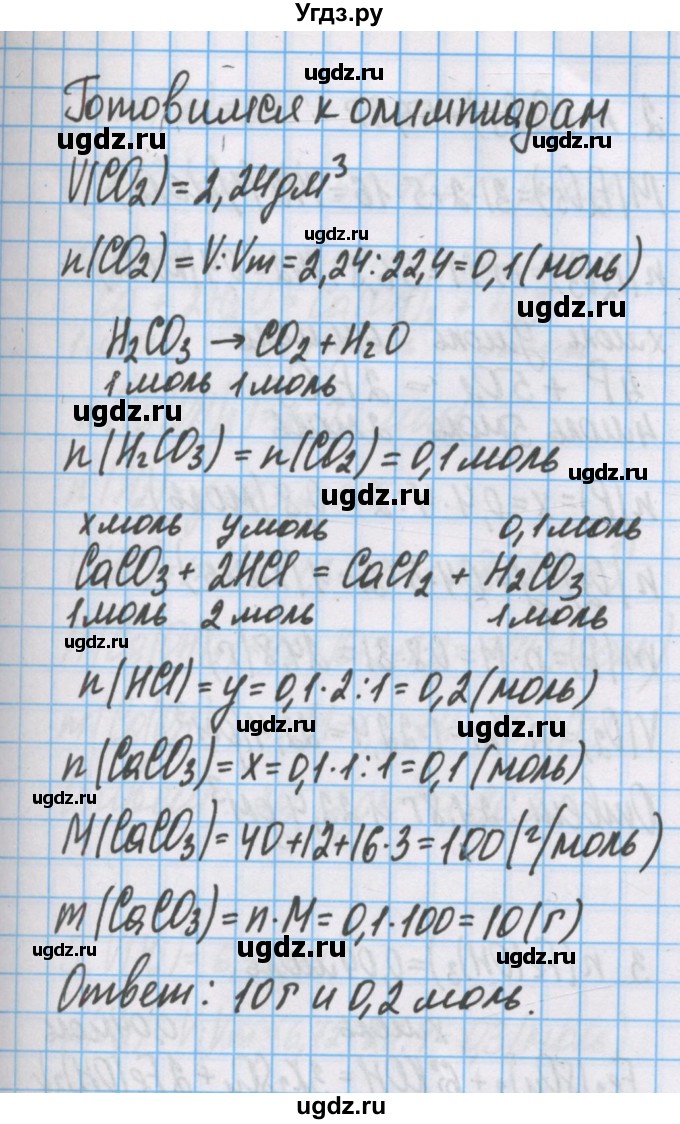 Угдз.ру
ugdz.ru
Готовимся к олимпиадам
ugdz.ru
ugdz.ru
V(CO₂) = 2,24 дм³
ugdz.ru
n(CO₂) = V:Vm = 2,24:22,4 = 0,1 (моль)
ugdz.ru
H₂CO₃ → CO₂ + H₂O
1 моль 1 моль
ugdz.ru
n(H₂CO₃) = n(CO₂) = 0,1 моль
ugdz.ru
ugdz.ru
x моль y моль 0,1 моль
CaCO₃ + 2HCl = CaCl₂ + H₂CO₃
1 моль 2 моль 1 моль
ugdz.ru
n(HCl) = y = 0,1·2:1 = 0,2 (моль)
ugdz.ru
ugdz.ru
n(CaCO₃) = x = 0,1·1:1 = 0,1 (моль)
ugdz.ru
M(CaCO₃) = 40+12+16·3 = 100 (г/моль)
ugdz.ru
m(CaCO₃) = n·M = 0,1·100 = 10 (г)
ugdz.ru
ugdz.ru
ugdz.ru
Ответ: 10 г и 0,2 моль.
ugdz.ru